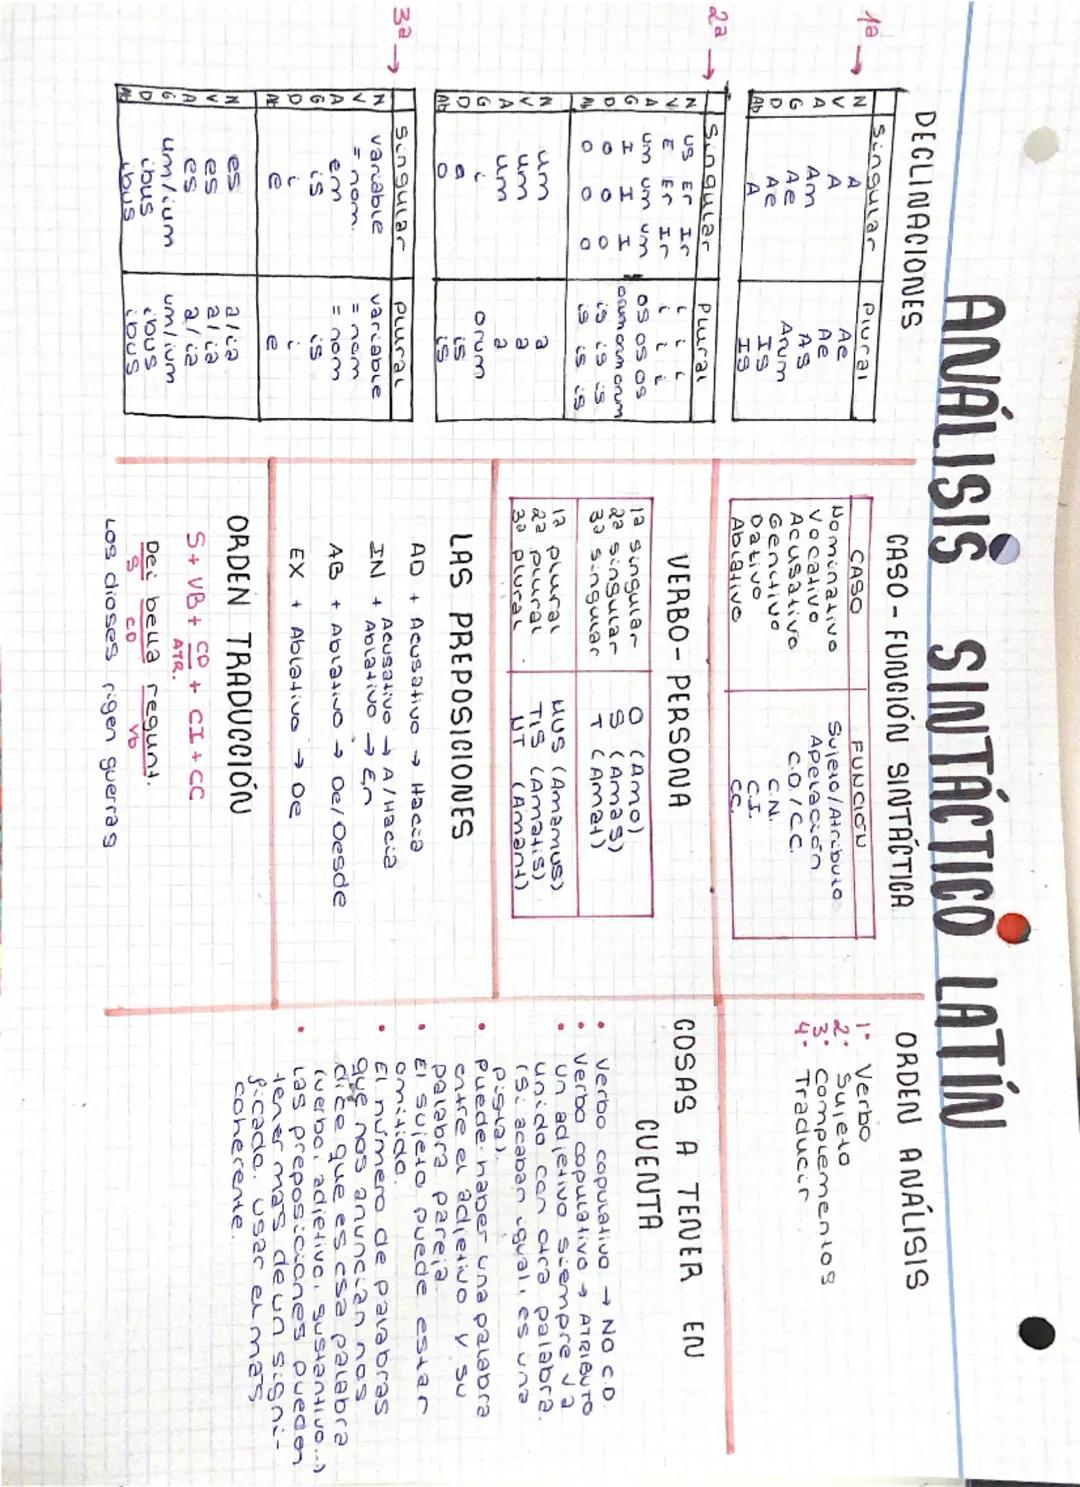 ANÁLISIS SINTÁCTICO LATÍN
DECLINACIONES
1ª →
Singular Plural
N A Ae
V A Ae
A Am As
G Ae Arum
D Ae Is
Ab A Is
2ª →
Singular Plural
N us Er Ir i i i
V E Er Ir i i i
A um um um os os os
G I I I orum orum orum
D o o o is is is
Ab o o o is is is
N um a
V um a
A um a
G i orum
D o is
Ab o is
3ª →
Singular Plural
N variable variable
V = nom. = nom
A em = nom
G is is
D i i
Ab e e
N es a/ia
V es a/ia
A es a/ia
G um/ium um/ium
D ibus ibus
Ab ibus ibus
CASO - FUNCIÓN SINTÁCTICA
CASO FUNCIÓN
Nominativo Sujeto/Atributo
Vocativo Apelación
Acusativo C.D./C.C.
Genitivo C.N.
Dativo C.I.
Ablativo CC.
VERBO - PERSONA
1ª singular O (Amo)
2ª singular S (Amas)
3ª singular T (Amat)
1ª plural MUS (Amamus)
2ª plural TIS (Amatis)
3ª plural NT (Amant)
LAS PREPOSICIONES
AD + Acusativo → Hacia
IN + Acusativo → A/Hacia
Ablativo → En
AB + Ablativo → De/Desde
EX + Ablativo → De
ORDEN TRADUCCIÓN
S + VB + CD + CI + CC
ATR.
Dei bella regunt.
S CD Vb
Los dioses rigen gueras
ORDEN ANÁLISIS
1· Verbo
2· Sujeto
3· Complementos
4· Traducir
COSAS A TENER EN
CUENTA
• Verbo copulativo → NO C.D.
• Verbo copulativo → ATRIBUTO
• Un adjetivo siempre va
unido con otra palabra.
(si acaban igual, es una
pista).
• Puede haber una palabra
entre el adjetivo y su
palabra pareja.
• El sujeto puede estar
omitido.
• El número de palabras
que nos anuncian nos
dice que es esa palabra
(verbo, adjetivo, sustantivo...)
• Las preposiciones pueden
tener más de un signi-
ficado. Usar el más
coherente.